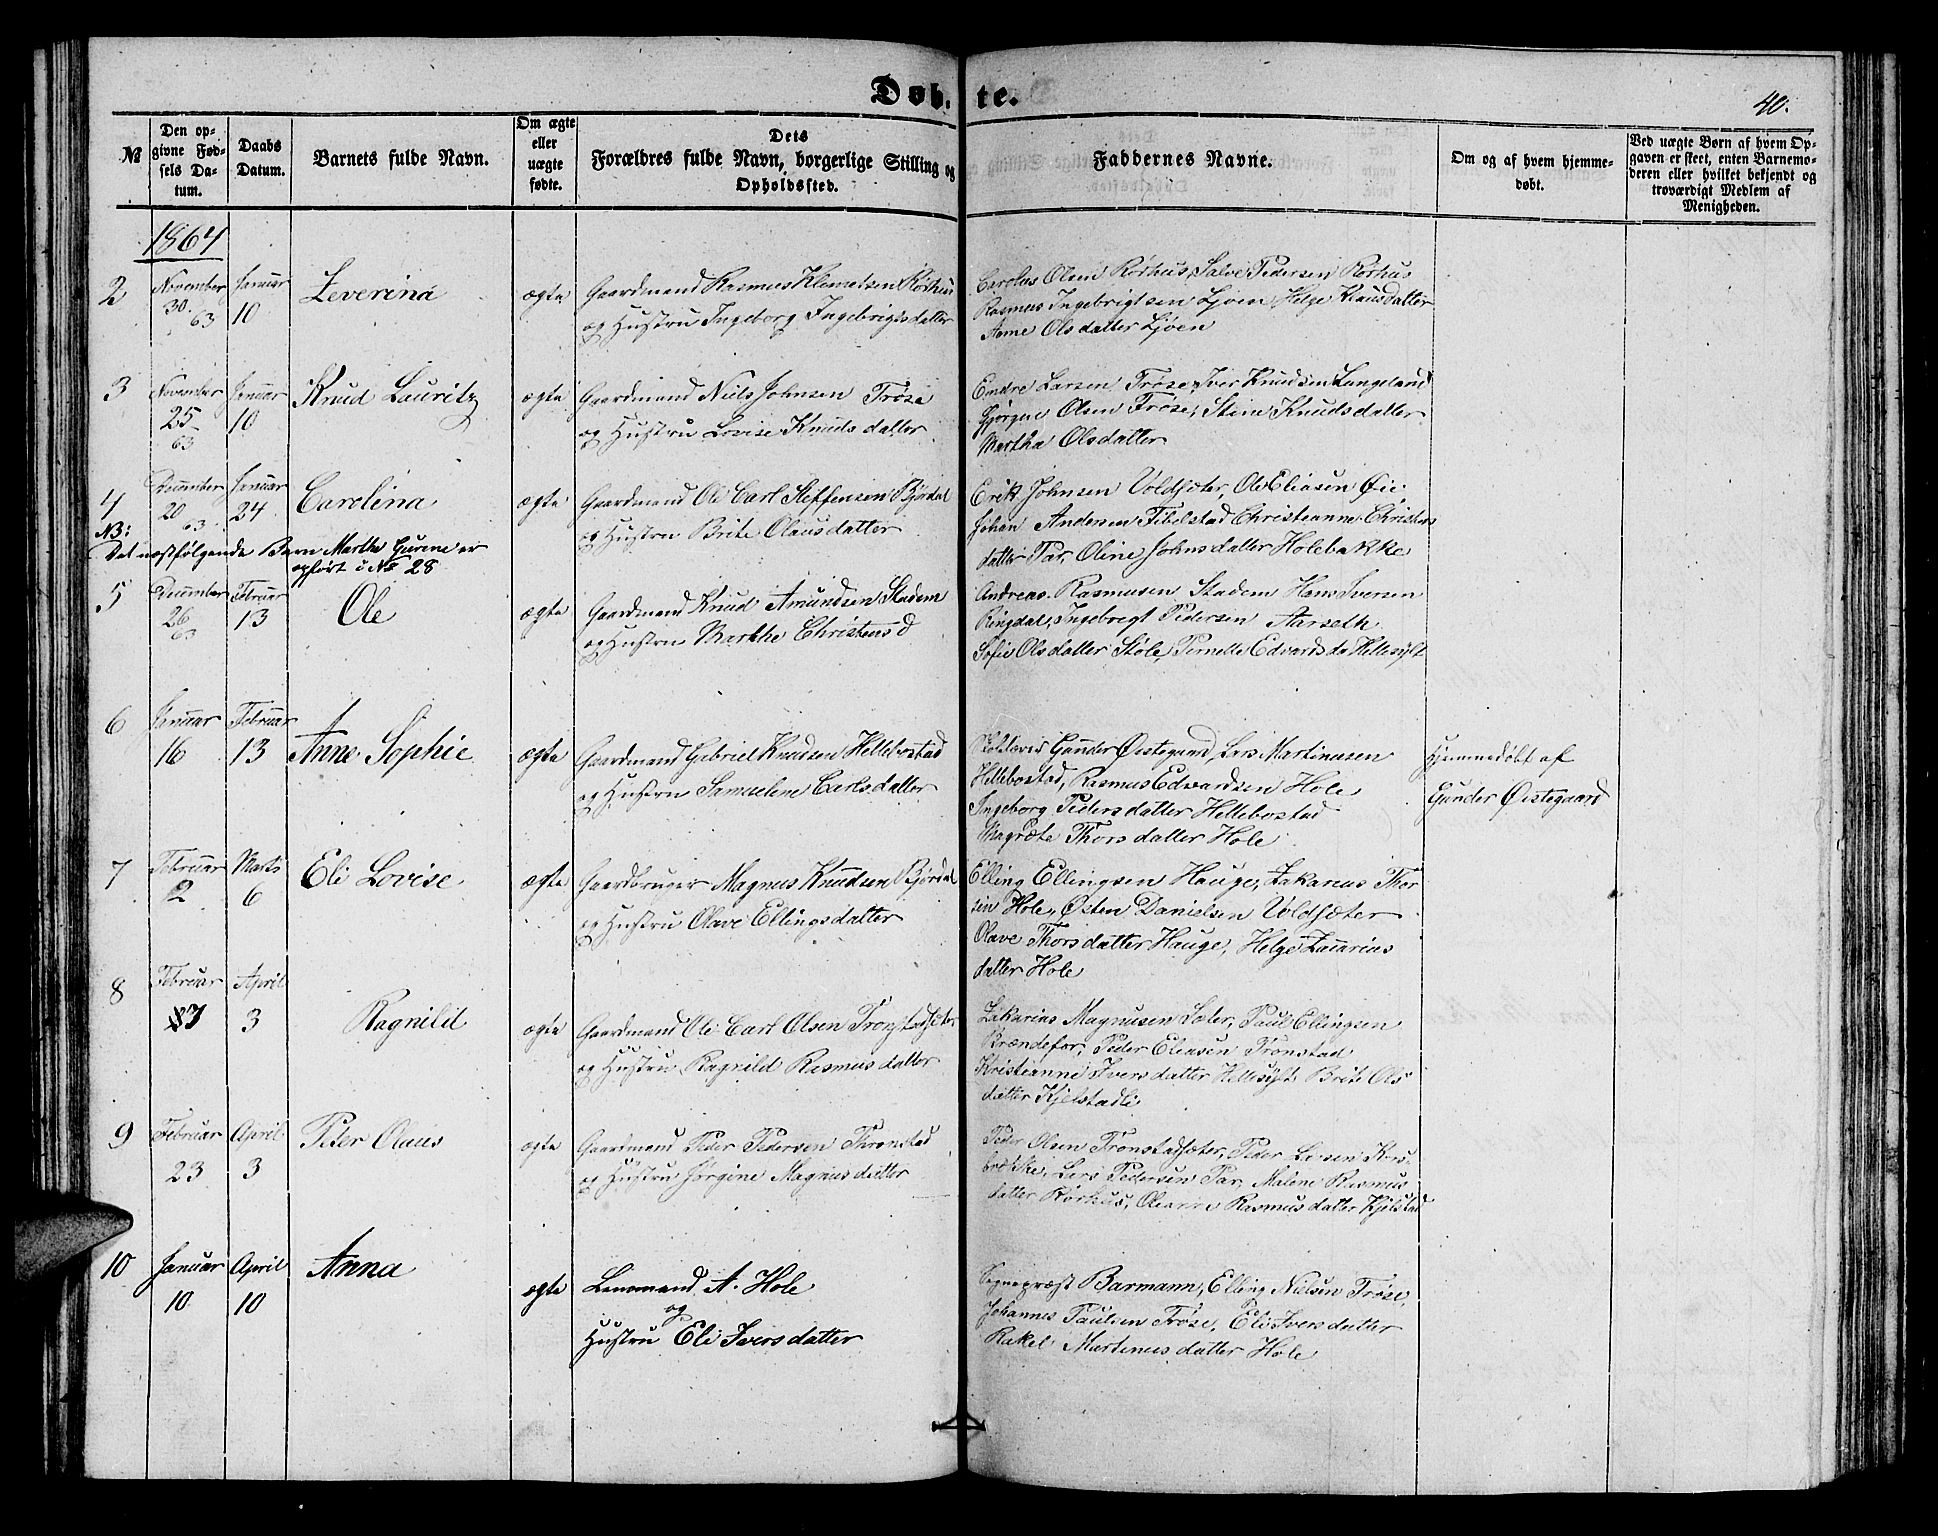 Døb- te.
40.
№
Den opgivne Fødsels Datum.
Daabs Datum.
Barnets fulde Navn.
Om ægte eller uægte fødte.
Dets Forældres fulde Navn, borgerlige Stilling og Opholdssted.
Faddernes Navne.
Om og af hvem hjemmedøbt.
Ved uægte Børn af hvem Opgaven er skeet, enten Barnemoderen eller hvilket bekjendt og troværdigt Medlem af Menigheden.
1864
2 November 30. 63 Januar 10 Zeverina ægte
Gaardmand Rasmus Klemetsen Rørhus
og Hustru Ingeborg Ingebrigtsdatter
Carolus Olsen Rørhus, Salve Pedersen Rørhus
Rasmus Ingebrigtsen Ljøen, Helge Klausdatter
Anne Olsdatter Ljøen
3 November 25 63 Januar 10 Knud Lauritz ægte
Gaardmand Niels Johnsen Trøse
og Hustru Lovise Knudsdatter
Endre Larsen Trøse, Iver Knudsen Langeland
Gjørgen Olsen Trøse, Stine Knudsdatter
Martha Olsdatter
4 December 20 63 Januar 24 Carolina ægte
Gaardmand Ole Carl Steffensen Bjørdal
og Hustru Brite Olausdatter
Erik Johnsen Voldsæter, Ole Eliasen Øie,
Johan Andersen Tibelstad Christianne Christens
datter Tar, Oline Johnsdatter Holebakke
NB:
Det næstfølgende Barn Marthe Gurine er
opført i No 28
5 December 26 63 Februar 13 Ole ægte
Gaardmand Knud Amundsen Stadem
og Hustru Marthe Christensd
Andreas Rasmusen Stadem Hans Iversen
Ringdal, Ingebrigt Pedersen Aarseth
Sofie Olsdatter Støle, Pernelle Edvardsda Hellesylt
6 Januar 16 Februar 13 Anne Sophie ægte
Gaardmand Gabriel Knudsen Hellebostad
og Hustru Samueline Carlsdatter
Gunder Øistegaard, Lars Martinusen
Hellebostad, Rasmus Edvardsen Hole
Ingeborg Pedersdatter Hellebostad
Magrete Thorsdatter Hole
Hjemmedøbt af
Gunder Øistegaard
7 Februar 2 Marts 6 Eli Lovise ægte
Gaardbruger Magnus Knudsen Bjørdal
og Hustru Olave Ellingsdatter
Elling Ellingsen Hauge, Zakarius Thor
sen Hole, Østen Danielsen Voldsæter
Olave Thorsdatter Hauge, Helge Zacarias
datter Hole
8 Februar April 3 Ragnild ægte
Gaardmand Ole Carl Olsen Tronstadsæter
og Hustru Ragnild Rasmusdatter
Zakarias Magnusen Sæter, Paul Ellingsen
Brændefor, Peder Eliasen Tronstad
Kristianne Iversdatter Hellesylt Brite Ols
datter Kjelstadli
9 Februar 23 April 3 Peter Olaus ægte
Gaardmand Peder Pedersen Thronstad
og Hustru Jørgine Magnusdatter
Peder Olsen Tronstadsæter, Peder Larsen Kors
brække, Lars Pedersen Tar, Malene Rasmus
datter Rørhus, Oleanna Rasmusdatter Kjelstad
10 Januar 10 April 10 Anna ægte
Lensmand A. Hole
og
Hustru Eli Iversdatter
Sognepræst Barmann, Elling Nielsen Trøse,
Johannes Paulsen Trøse, Eli Iversdatter
Rakel Martinusdatter Hole